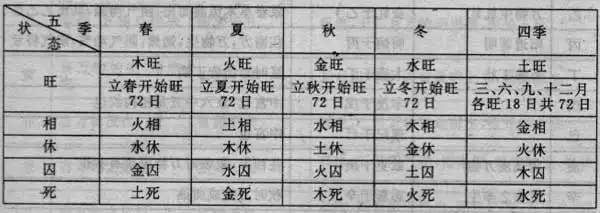 状态 五 季 春 夏 秋 冬 四季
旺 木旺 火旺 金旺 水旺 土旺
立春开始旺72日 立夏开始旺72日 立秋开始旺72日 立冬开始旺72日 三、六、九、十二月各旺18日共72日
相 火相 土相 水相 木相 金相
休 水休 木休 土休 金休 火休
囚 金囚 水囚 火囚 土囚 木囚
死 土死 金死 木死 火死 水死